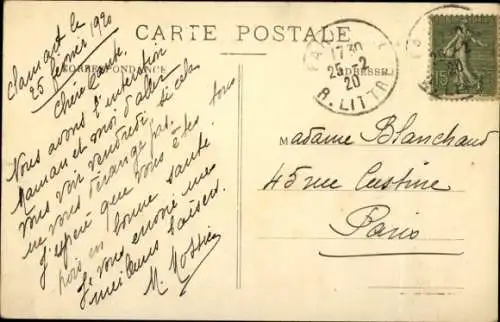 CARTE POSTALE
CORRESPONDANCE
ADRESSE
Clamart le
25 février 1920
Chère tante,
Nous avons l'intention
Maman et moi d'aller
vous voir vendredi, si cela
ne vous dérange pas.
J'espère que vous êtes tous
en bonne santé
Je vous envoie mes
meilleurs baisers.
M.
PA
17 30
25 - 2
20
R. LITTR
15
Madame Blanchard
45 rue Custine
Paris